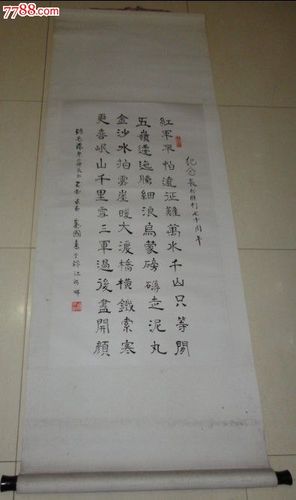 7788.com
纪念長征胜利七十周年
紅軍不怕遠征難萬水千山只等閒
五嶺逶迤騰細浪烏蒙磅礴走泥丸
金沙水拍雲崖暖大渡橋橫鐵索寒
更喜岷山千里雪三軍過後盡開顏